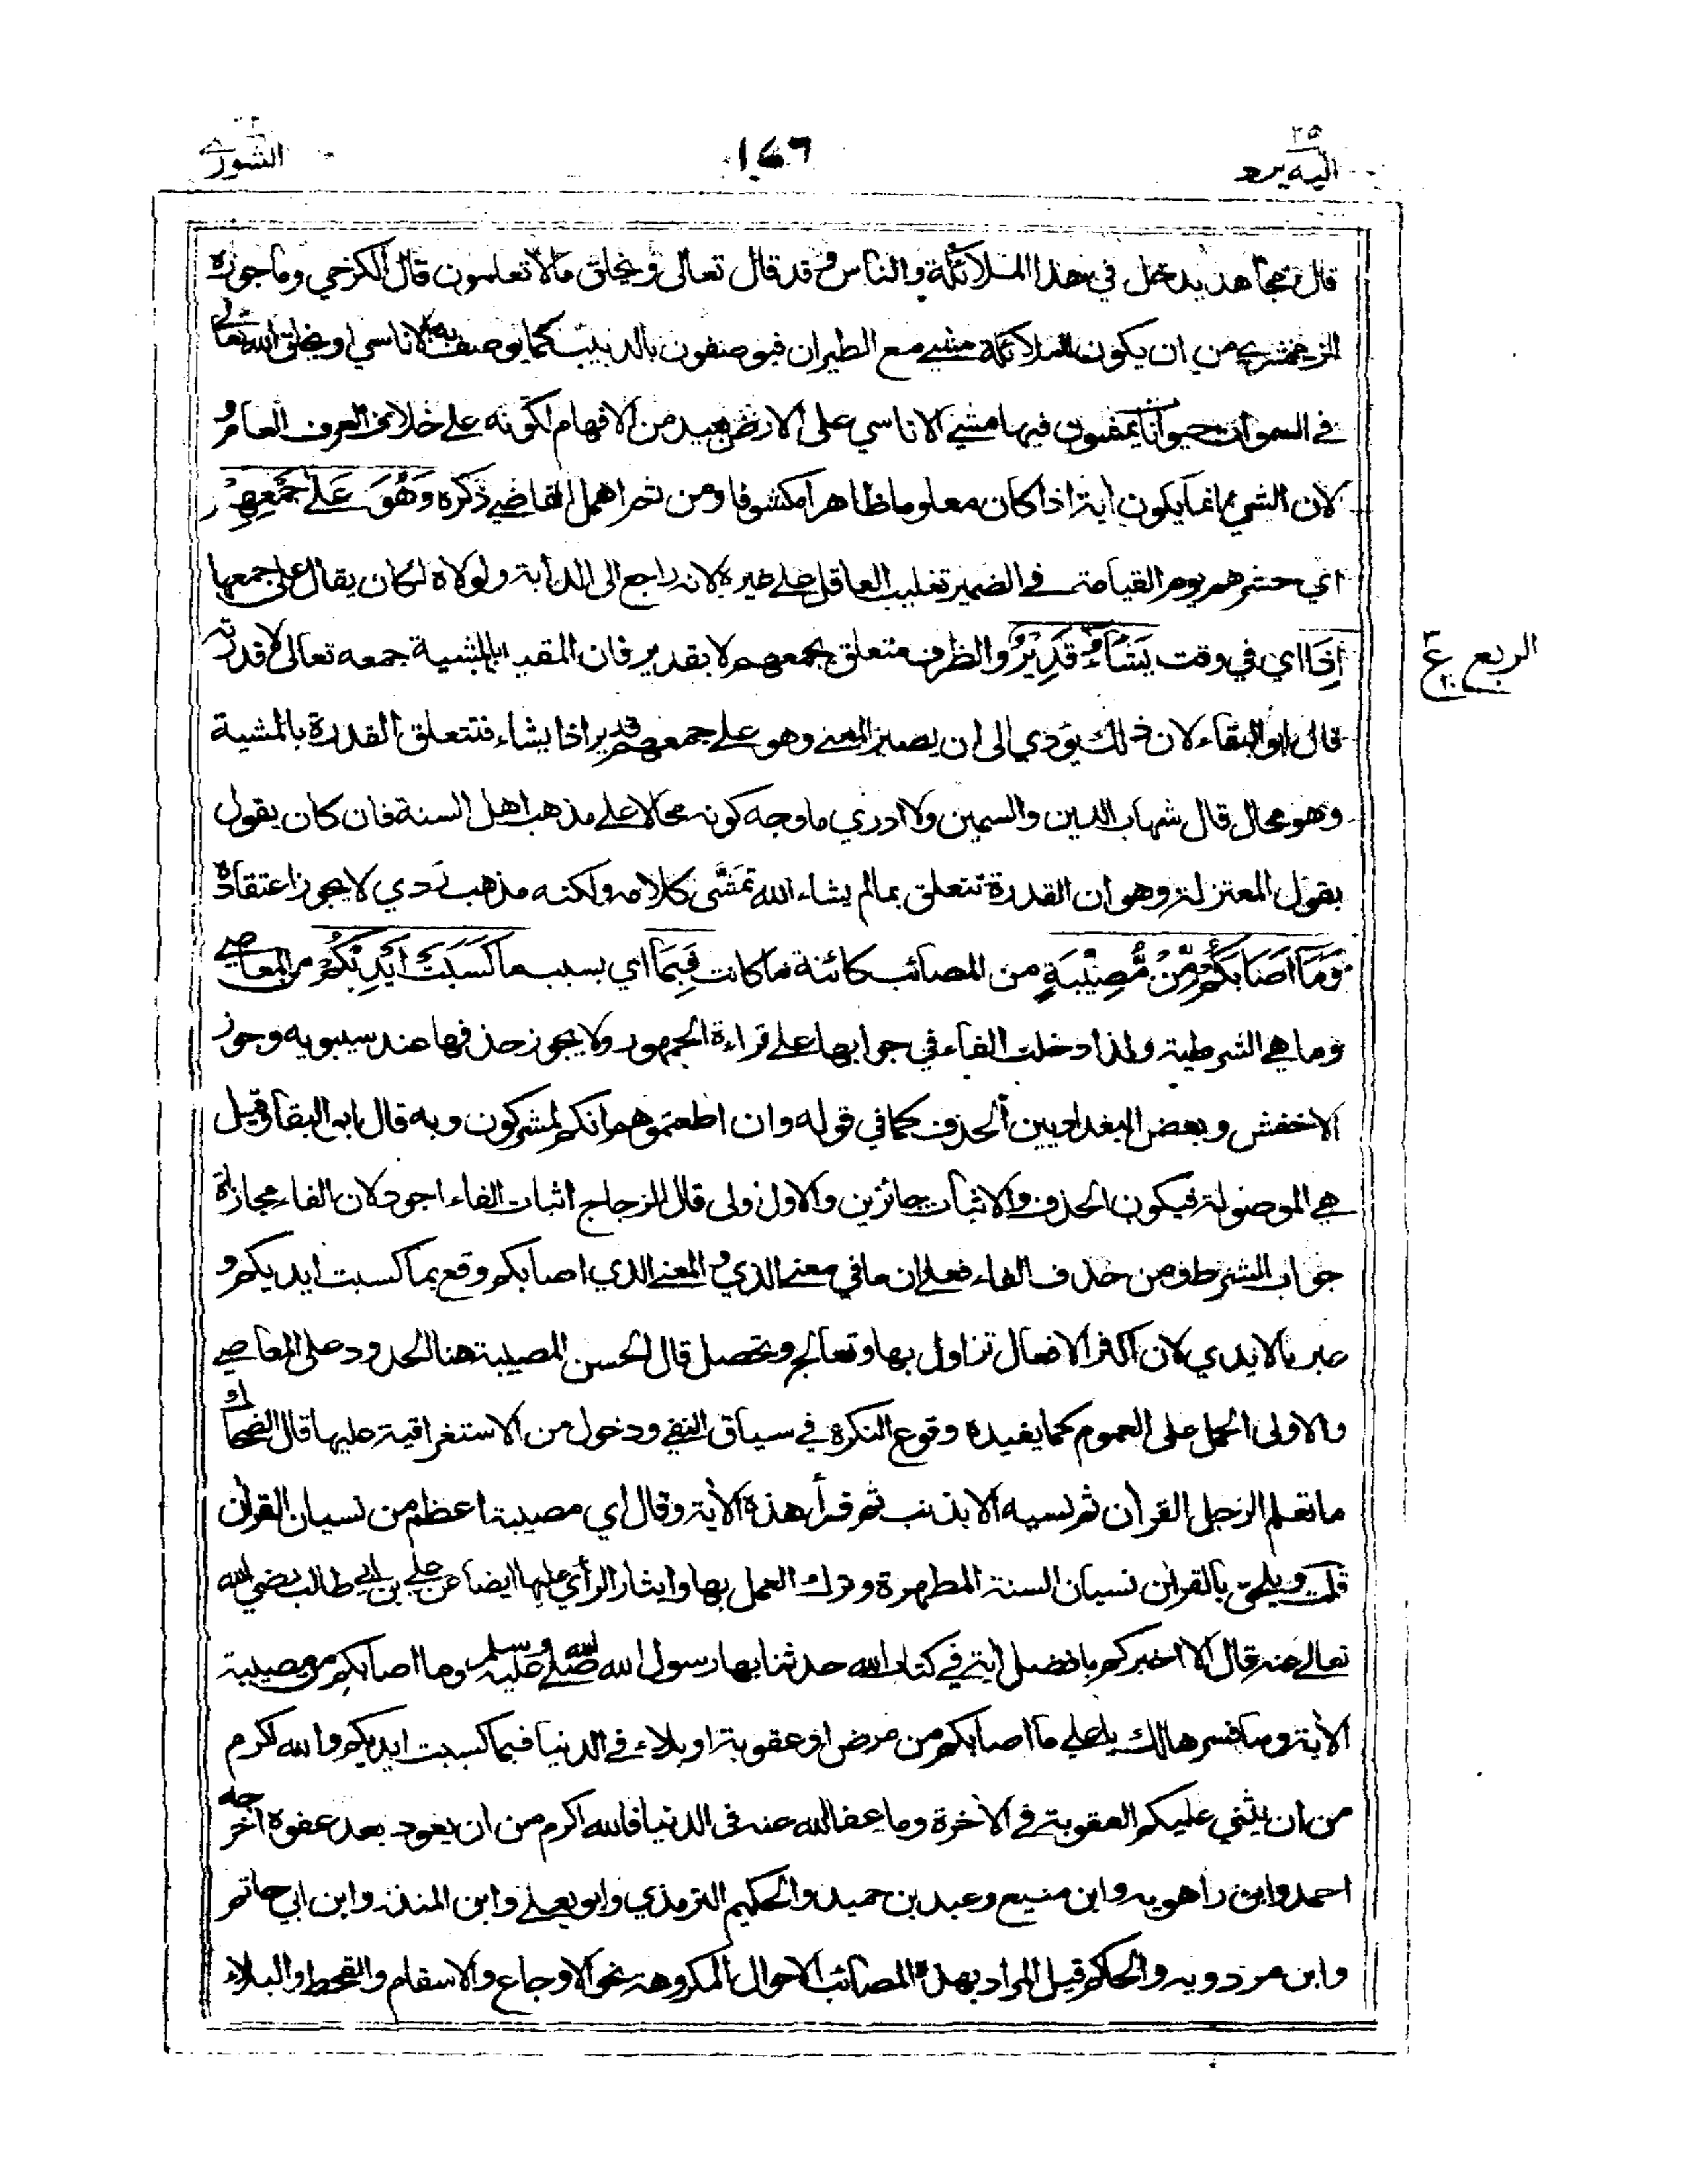 اليه يرد ٢٥
١٤٦
الشورى
قال مجاهد يدخل في هذا الملائكة والناس وقد قال تعالى ويخلق مالا تعلمون قال الكرخي وما جوزه
الزمخشري من ان يكون للملائكة مشي مع الطيران فيوصفون بالدبيب كما يوصف به الاناسي او يخلق الله تعالى
في السموات حيوانا يمشون فيها مشي الاناسي على الارض بعيد من الافهام لكونه على خلاف العرف العام و
لان الشيء انما يكون اية اذا كان معلوما ظاهرا مكشوفا ومن ثم اهمل القاضي ذكره وَهُوَ عَلٰى جَمْعِهِمْ
اي حشرهم يوم القيامة في الضمير تغليب العاقل على غيره لانه راجع الى الدابة ولولاه لكان يقال على جمعها
اِذَا اي في وقت يَشَآءُ قَدِيْرٌ والظرف متعلق بجمعهم لا بقدير فان المقيد بالمشية جمعه تعالى لا قدرته
الربع ع
قال ابو البقاء لان ذلك يؤدي الى ان يصير المعنى وهو على جمعهم قدير اذا يشاء فتتعلق القدرة بالمشية
وهو محال قال شهاب الدين والسمين ولا ادري ما وجه كونه محالا على مذهب اهل السنة فان كان يقول
بقول المعتزلة وهو ان القدرة تتعلق بما لم يشاء الله تمَشَّى كلامه ولكنه مذهب ردي لا يجوز اعتقاده
وَمَآ اَصَابَكُمْ مِّنْ مُّصِيْبَةٍ من المصائب كائنة ما كانت فَبِمَا اي بسبب ما كَسَبَتْ اَيْدِيْكُمْ من المعاصي
وما هي الشرطية ولذا دخلت الفاء في جوابها على قراءة الجمهور ولا يجوز حذفها عند سيبويه وجوز
الاخفش وبعض البغداديين الحذف كما في قوله وان اطعتموهم انكم لمشركون وبه قال ابو البقاء وقيل
هي الموصولة فيكون الحذف والاثبات جائزين والاول اولى قال الزجاج اثبات الفاء اجود لان الفاء مجازاة
جواب الشرط ومن حذف الفاء فعلى ان ما في معنى الذي والمعنى الذي اصابكم وقع بما كسبت ايديكم و
عبر بالايدي لان اكثر الافعال تزاول بها وتعالج وتحصل قال الحسن المصيبة هنا الحدود على المعاصي
والاولى الحمل على العموم كما يفيده وقوع النكرة في سياق النفي ودخول من الاستغراقية عليها قال الضحاك
ما تعلم الرجل القرآن ثم نسيه الا بذنب ثم قرأ هذه الآية وقال اي مصيبة اعظم من نسيان القرآن
قلت ويلحق بالقرآن نسيان السنة المطهرة وترك العمل بها وايثار الرأي عليها ايضا عن علي بن ابي طالب رضي الله
تعالى عنه قال الا اخبركم بافضل اية في كتاب الله حدثنا بها رسول الله صلى الله عليه وسلم وما اصابكم من مصيبة
الآية وسافسرها لك يا علي ما اصابكم من مرض او عقوبة او بلاء في الدنيا فبما كسبت ايديكم والله اكرم
من ان يثني عليكم العقوبة في الآخرة وما عفا الله عنه فى الدنيا فالله اكرم من ان يعود بعد عفوه اخرجه
احمد وابن راهويه وابن منيع وعبد بن حميد والحكيم الترمذي وابو يعلى وابن المنذر وابن ابي حاتم
وابن مردويه والحاكم قيل المراد بهذه المصائب الاحوال المكروهة نحو الاوجاع والاسقام والقحط والبلاء